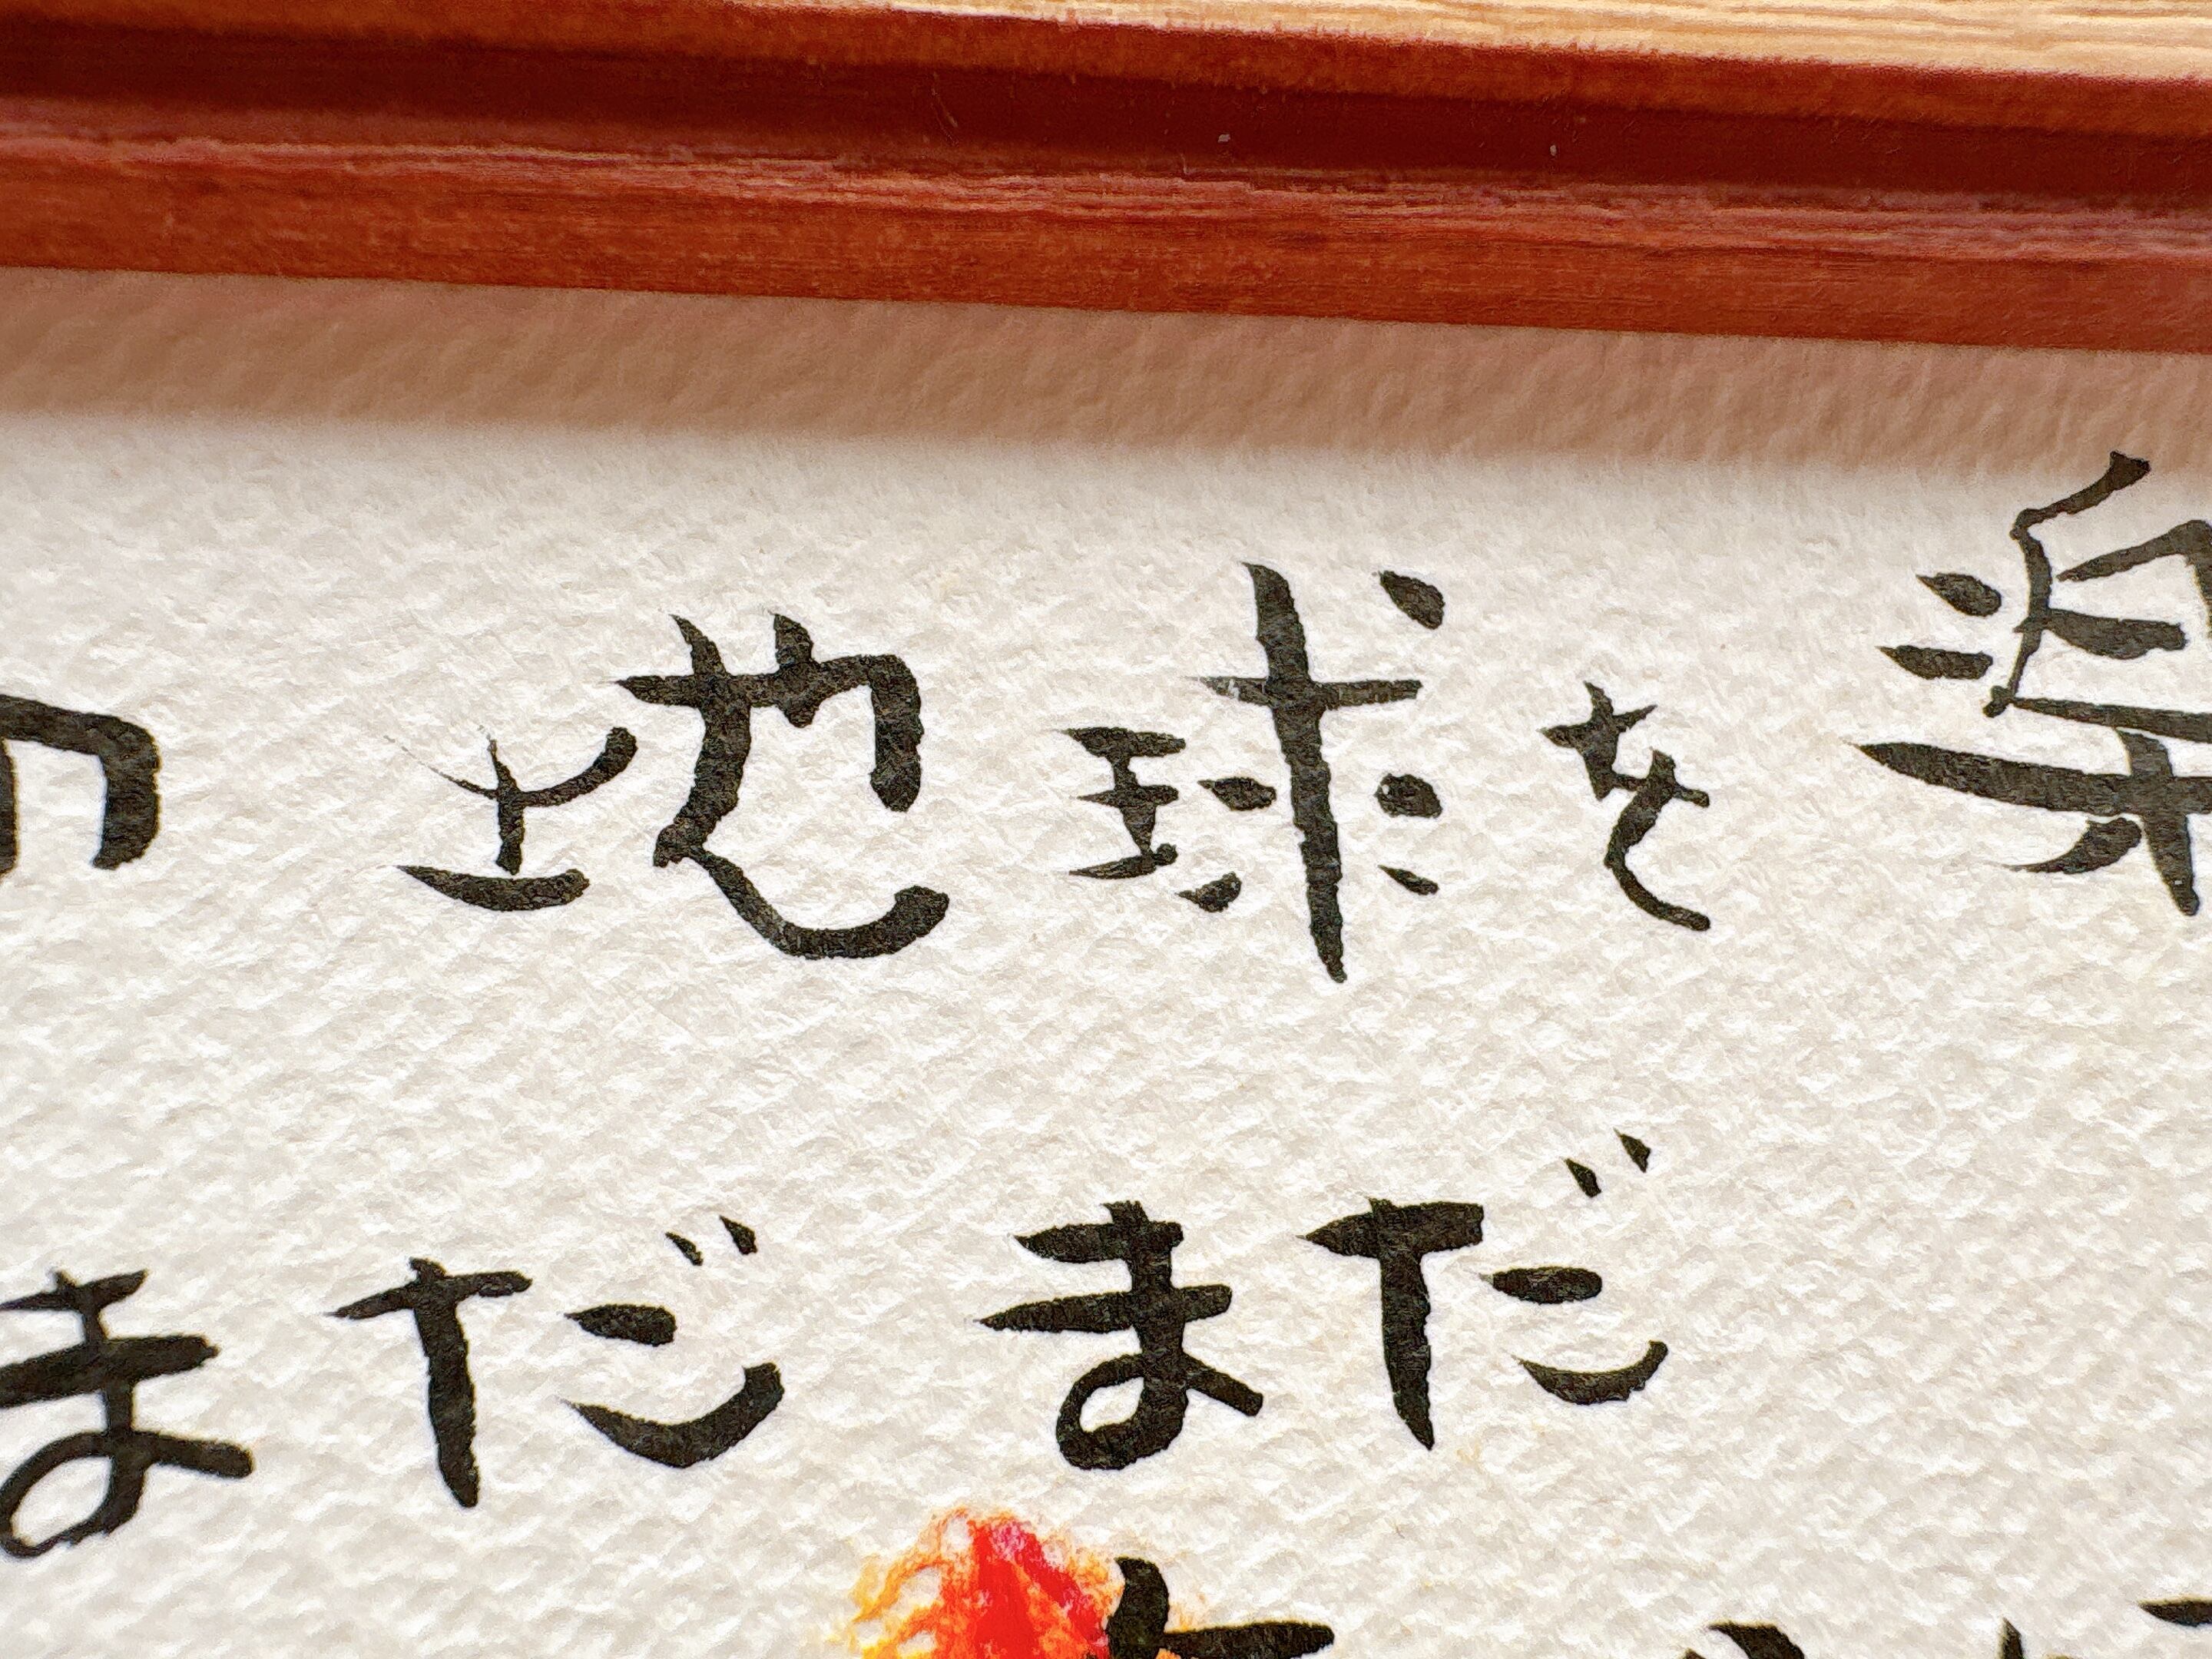 地球を楽
まだまだ